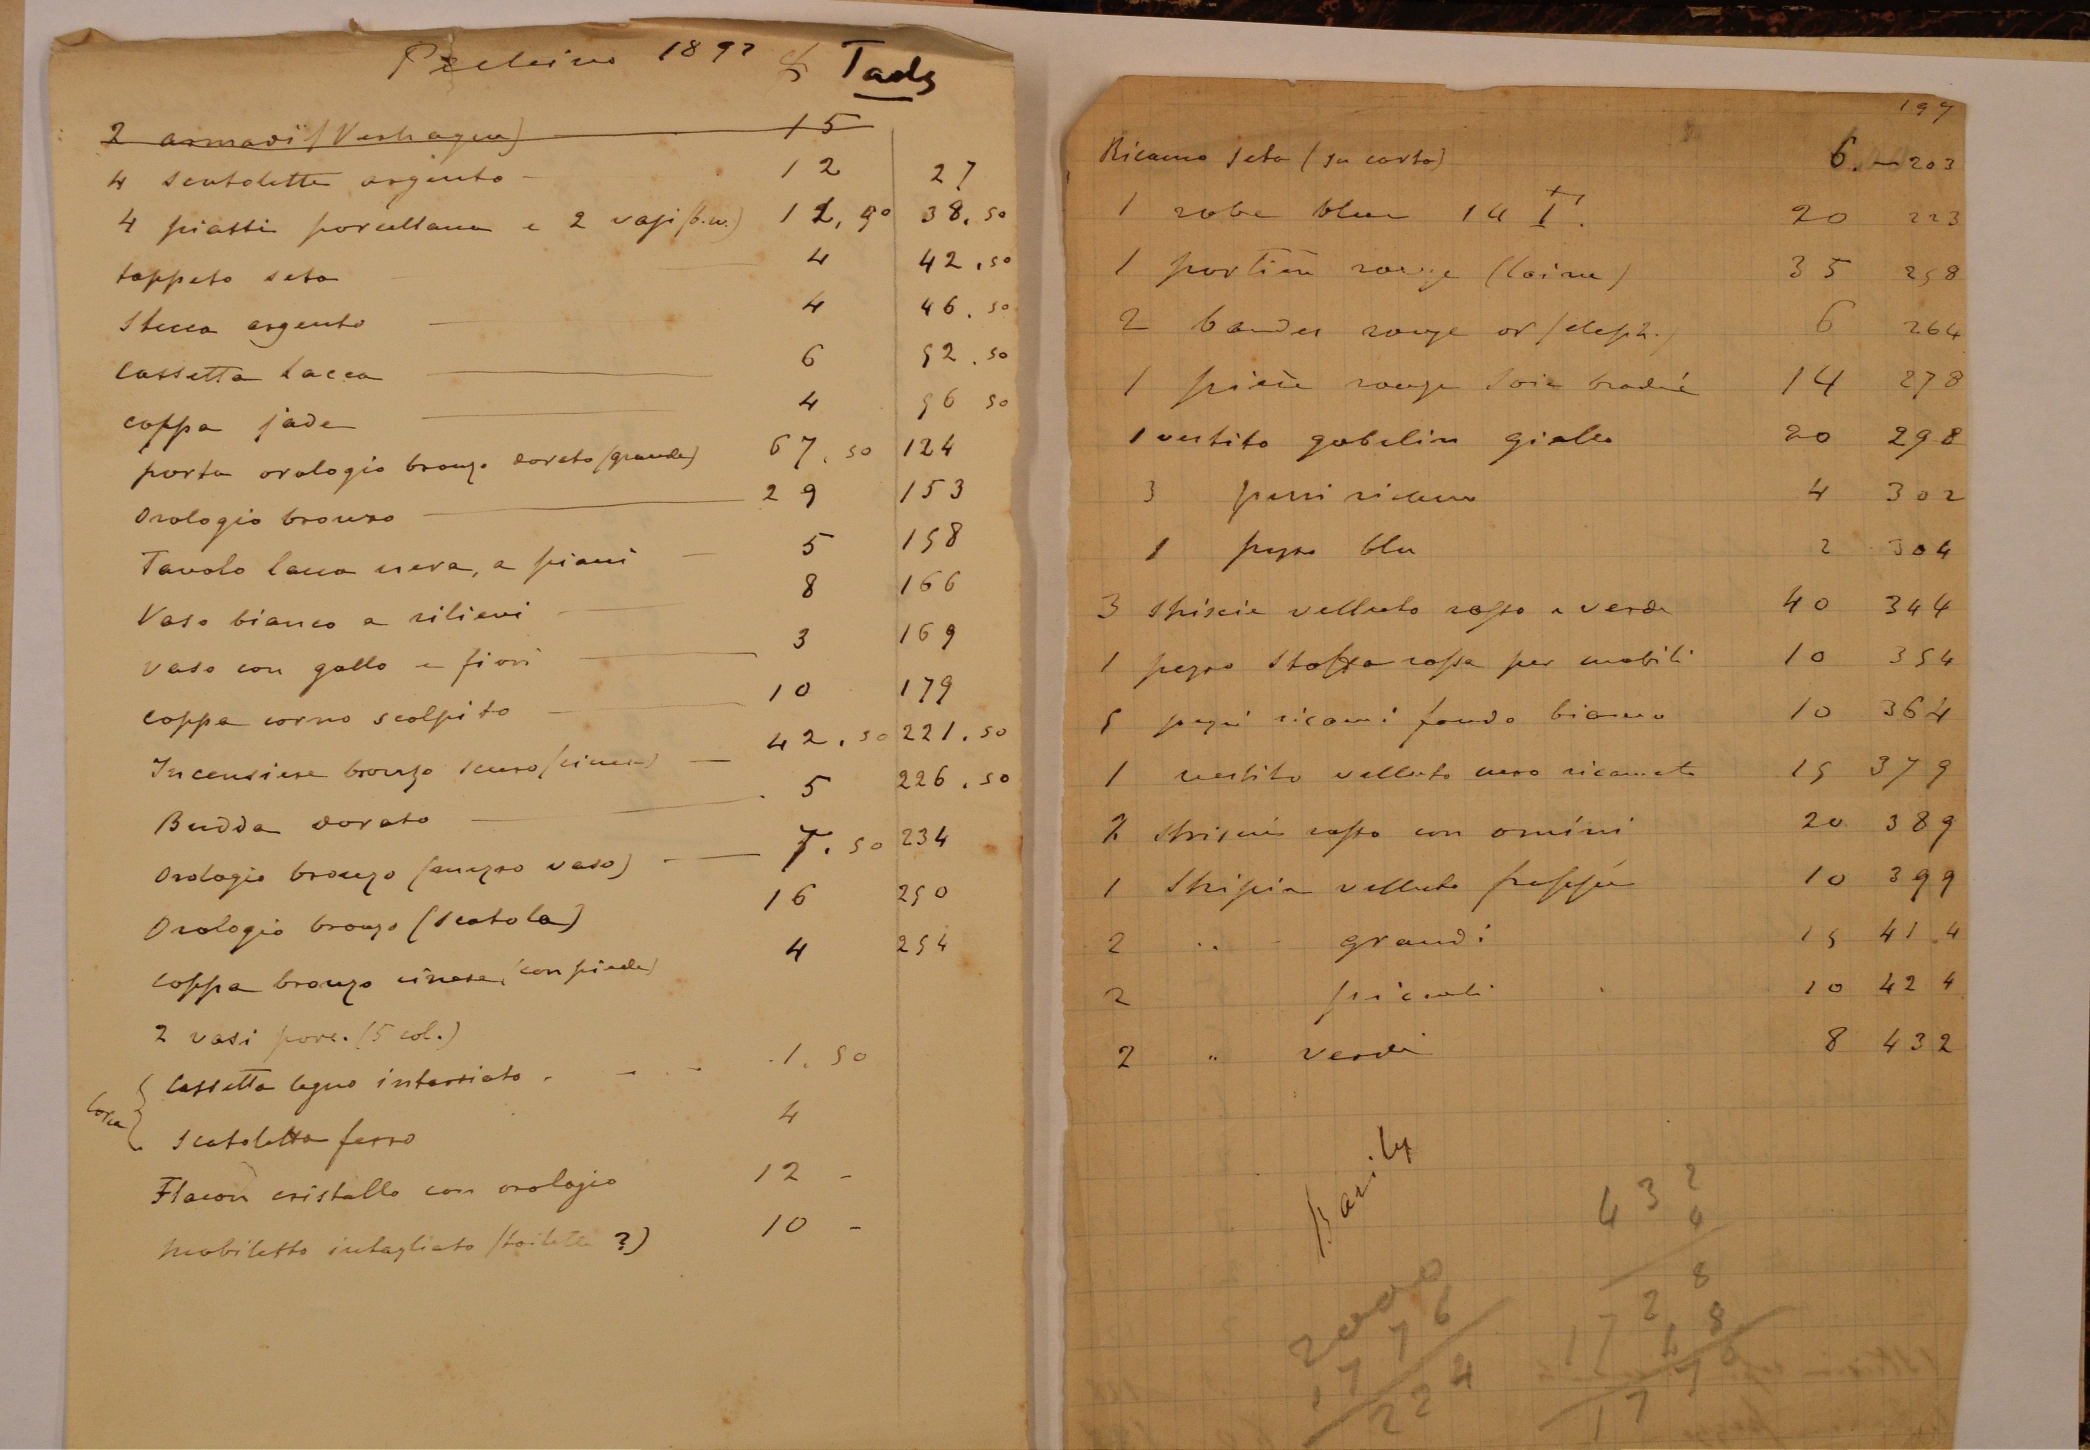 Pechino 1897 Taels
2 armadi (Verhagen) 15
4 scatolette argento 12 27
4 piatti porcellana e 2 vasi (b.u.) 12,50 38,50
tappeto seta 4 42.50
Stecca argento 4 46.50
Cassetta lacca 6 52.50
coppa jade 4 56 50
porta orologio bronzo dorato (grande) 67.50 124
Orologio bronzo 29 153
Tavolo lacca nera, a piani 5 158
Vaso bianco a rilievi 8 166
Vaso con gallo e fiori 3 169
coppa corno scolpito 10 179
Incensiere bronzo scuro (cinese) 42.50 221.50
Budda dorato 5 226.50
Orologio bronzo (mezzo vaso) 7.50 234
Orologio bronzo (scatola) 16 250
coppa bronzo cinese (con piede) 4 254
2 vasi porc. (5 col.)
Corea
Cassetta legno intarsiato 1.50
Scatoletta ferro 4
Flacon cristallo con orologio 12 -
Mobiletto intagliato (toilette ?) 10 -
197
Ricamo seta (su carta) 6.- 203
1 robe bleu 14 T. 20 223
1 portière rouge (laine) 35 258
2 bandes rouge or (eleph.) 6 264
1 pièce rouge soie brodée 14 278
1 vestito gobelin giallo 20 298
3 pezzi ricamo 4 302
1 pezzo blu 2 304
3 striscie velluto rosso e verde 40 344
1 pezzo stoffa rossa per mobili 10 354
5 pezzi ricami fondo bianco 10 364
1 vestito velluto nero ricamato 15 379
2 striscie rosso con omini 20 389
1 Striscia velluto frappée 10 399
2 " - grandi 15 414
2 piccoli 10 424
2 " verdi 8 432
432
4
1728
48
1776
2000
1776
224